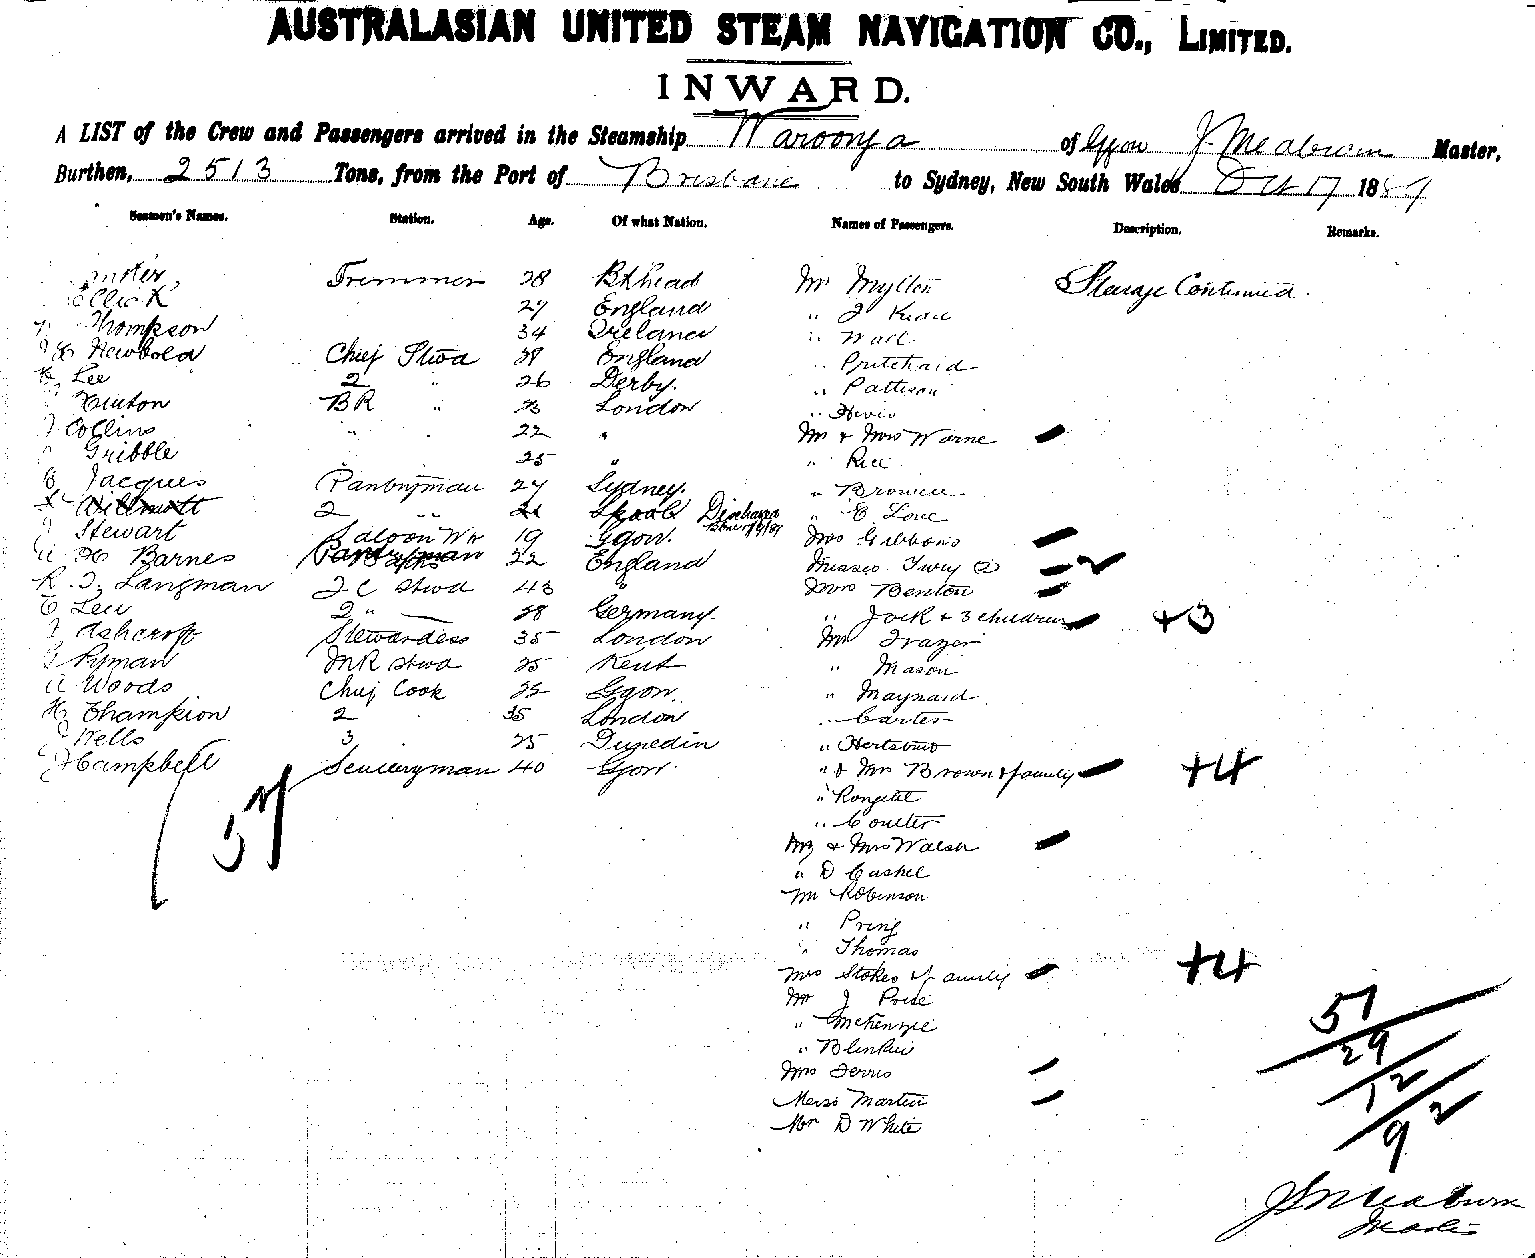 AUSTRALASIAN UNITED STEAM NAVIGATION CO., LIMITED.
INWARD.
A LIST of the Crew and Passengers arrived in the Steamship Waroonga of Ggow J. Meaburn Master,
Burthen, 2513 Tons, from the Port of Brisbane to Sydney, New South Wales Oct 17 1889
Seamen's Names. Station. Age. Of what Nation. Names of Passengers. Description. Remarks.
Trimmer 28 Bkhead Mr Mylton Steerage Continued.
27 England "
Thompson 34 Ireland " Wall
Newbold Chief Stwd 28 England " Pritchard
Lee 2 " 26 Derby. " Pattison
BR " 23 London "
Collins " 22 " Mr & Mrs Warne
Gribble " 25 " " Rice
Jacques Pantryman 27 Sydney. " Brown
Willmott 2 " " 21 " E Love
J Stewart Saloon Wr 19 Ggow. Mrs Gibbons
A H Barnes 22 England Misses (2)
R. J. Langman F C Stwd 43 " Mrs Benton
2 " 28 Germany. " Jock & 3 children +3
J Ashcroft Stewardess 35 London Mr Frazer
Ryman MR Stwd 25 Kent " Mason
A Woods Chief Cook 25 Ggow. " Maynard
H Champion 2 35 London " Carter
Wells 3 25 Dunedin "
J Campbell Sculleryman 40 Ggow. " & Mrs Brown & family +4
57
" Coulter
Mr & Mrs Walsh
" D Cashel
Mr Robinson
" Pring
" Thomas
Mrs Stokes & family +4
Mr J
" McKenzie
"
Mrs Ferris
Martin
Mr D White
57
29
12
2
9
J Meaburn
Master